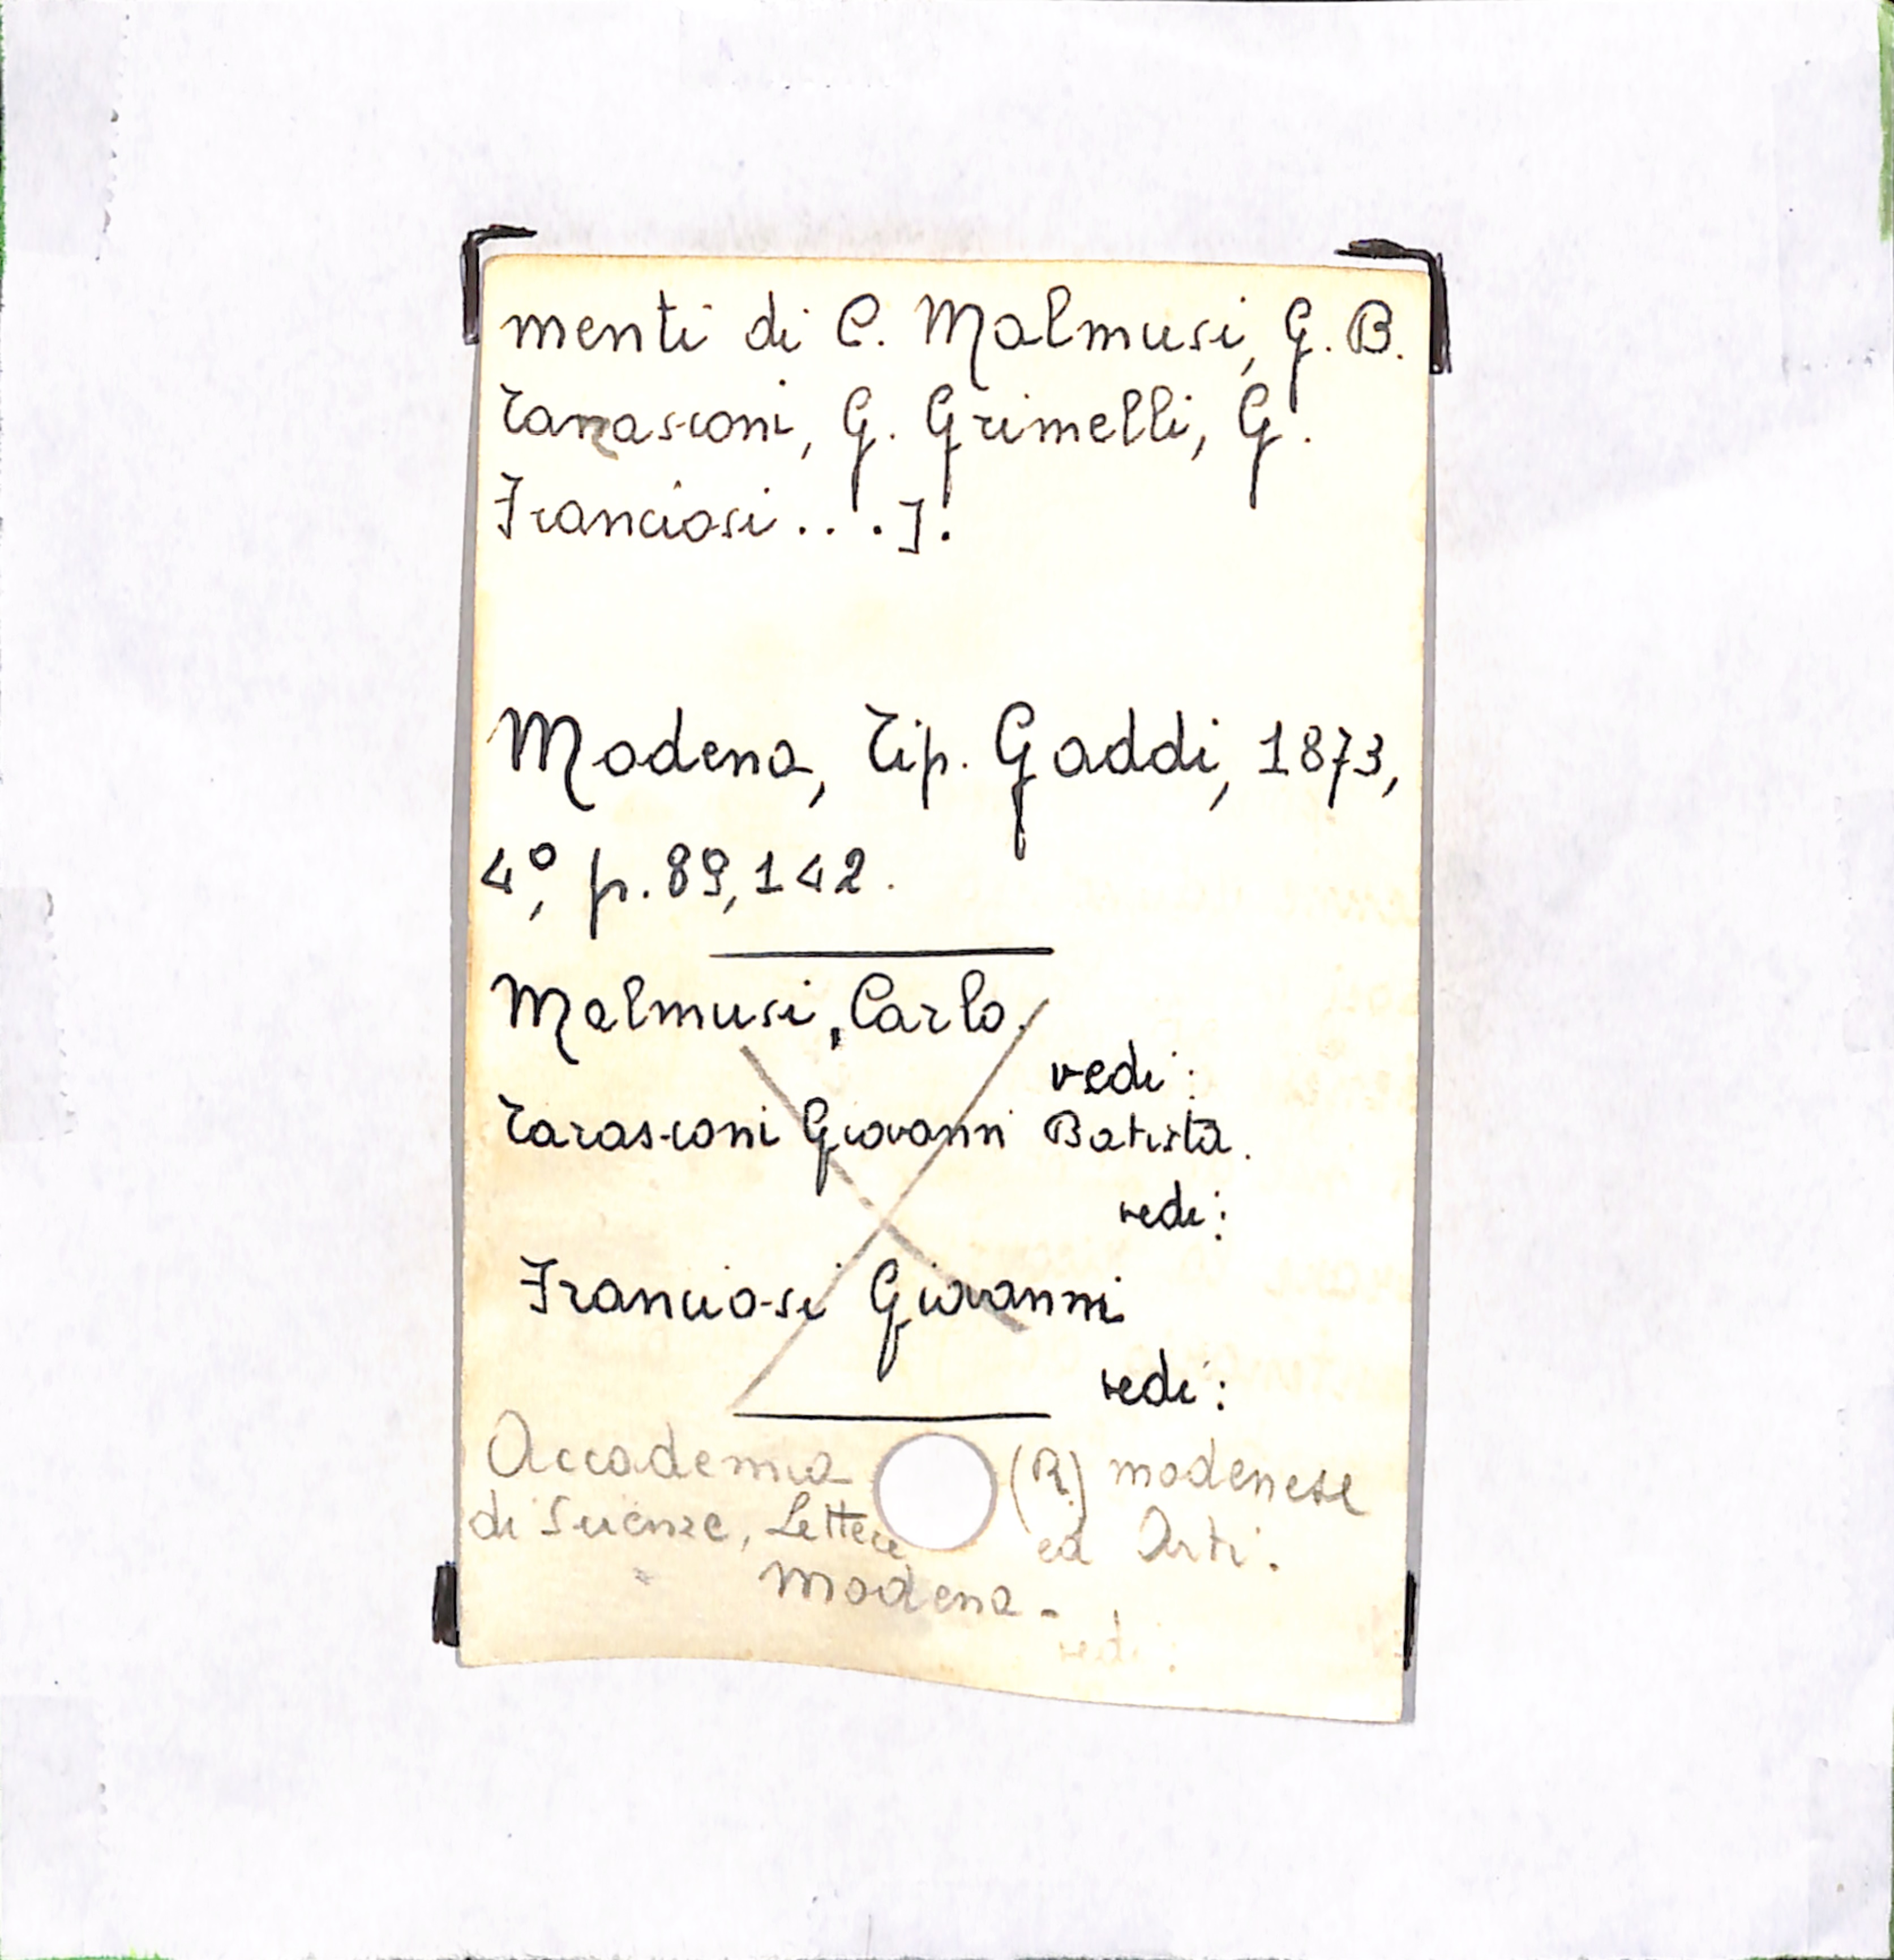 menti di C. Malmusi, G. B.
Tarasconi, G. Grimelli, G.
Franciosi....].
Modena, Tip. Gaddi, 1873,
4°, p. 89,142.
Malmusi, Carlo.
vedi:
Tarasconi Giovanni Batista.
vedi:
Franciosi Giovanni
vedi:
Accademia (R.) modenese
di Scienze, Lettere ed Arti.
Modena -
vedi: